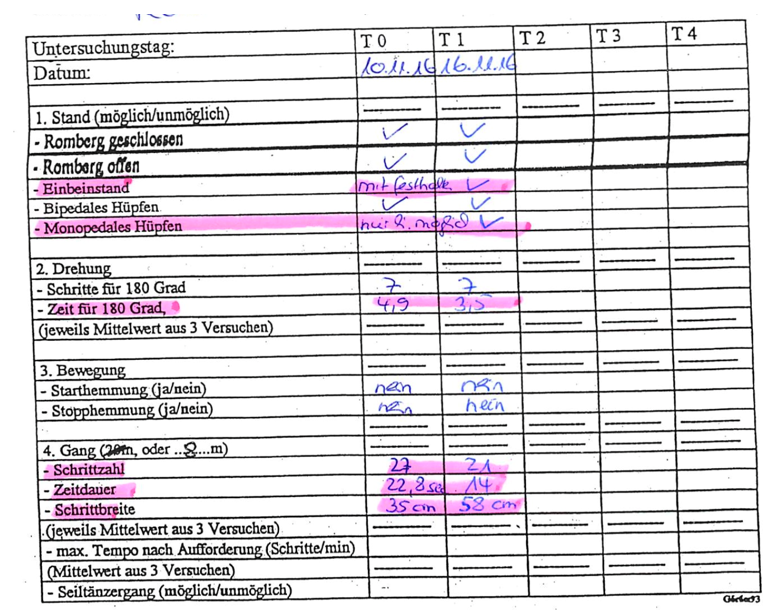 Untersuchungstag: T 0 T 1 T 2 T 3 T 4
Datum: 10.11.16 16.11.16
1. Stand (möglich/unmöglich)
- Romberg geschlossen ✓ ✓
- Romberg offen ✓ ✓
- Einbeinstand mit festhalten ✓
- Bipedales Hüpfen ✓ ✓
- Monopedales Hüpfen nur möglich ✓
2. Drehung
- Schritte für 180 Grad 7 7
- Zeit für 180 Grad, 4,9 3,5
(jeweils Mittelwert aus 3 Versuchen)
3. Bewegung
- Starthemmung (ja/nein) nein nein
- Stopphemmung (ja/nein) nein nein
4. Gang (20m, oder ..8...m)
- Schrittzahl 27 21
- Zeitdauer 22,8 sec 14
- Schrittbreite 35 cm 58 cm
(jeweils Mittelwert aus 3 Versuchen)
- max. Tempo nach Aufforderung (Schritte/min)
(Mittelwert aus 3 Versuchen)
- Seiltänzergang (möglich/unmöglich)